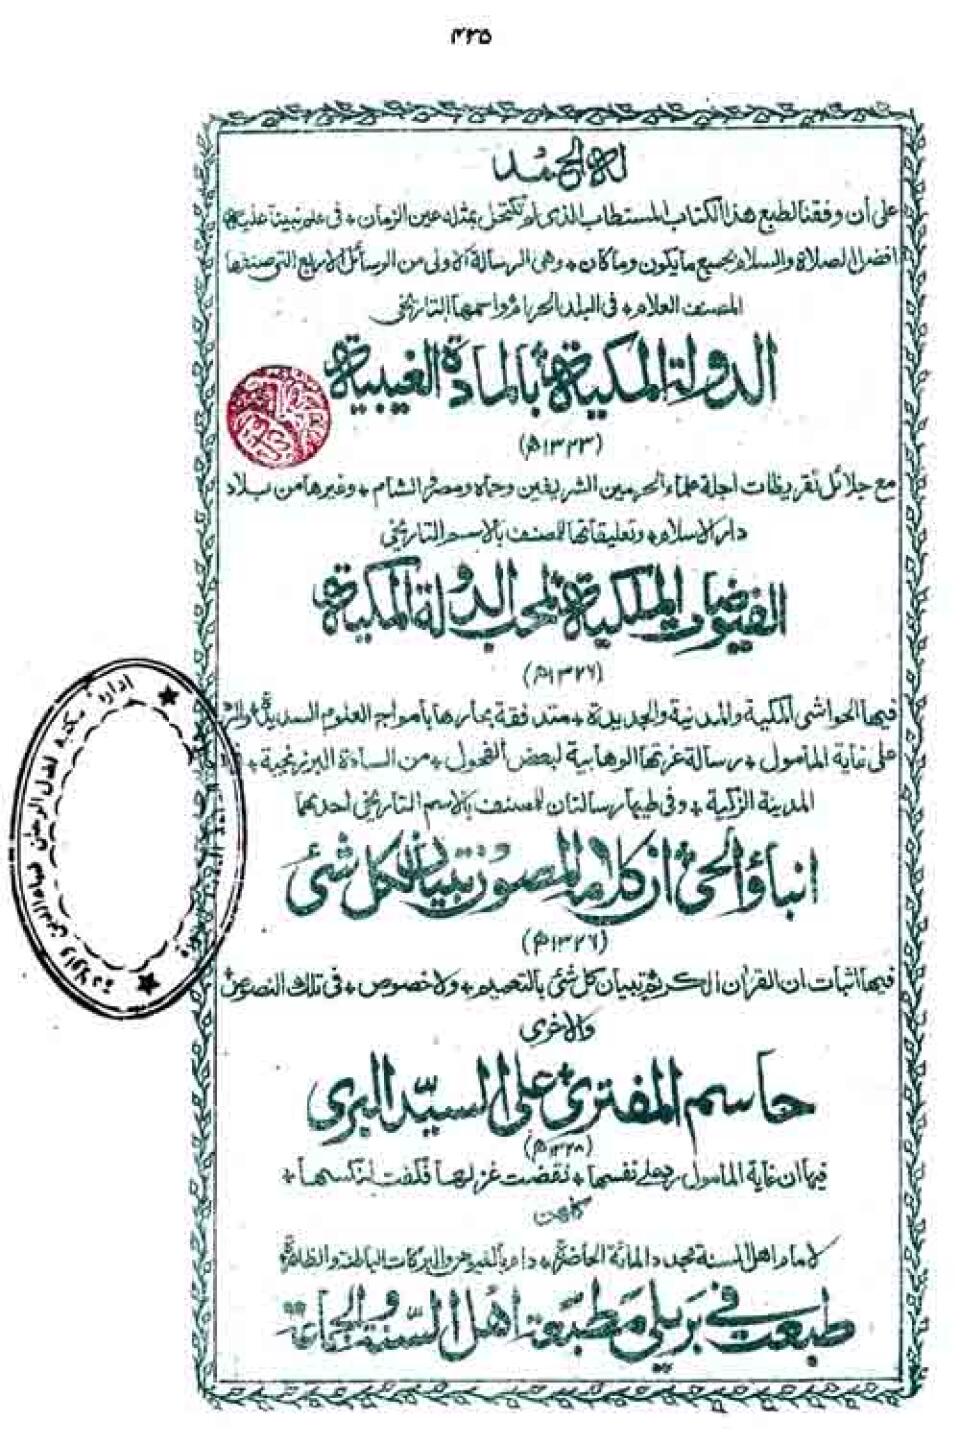 ۴۳۵
له الحمد
على أن وفقنا لطبع هذا الكتاب المستطاب الذي لم تكتحل بمثله عين الزمان + فى علم نبينا عليه
افضل الصلاة والسلام بجميع ما يكون وما كان + وهى الرسالة الاولى من الرسائل الاربع التى صنفها
المصنف العلام + فى البلد الحرام واسمها التاريخى
الدولة المكية بالمادة الغيبية
(١٣٢٣ه)
مع جلائل تقريظات اجلة علماء الحرمين الشريفين وحماه ومصر والشام + وغيرها من بلاد
دار الاسلام + وتعليقاتها للمصنف بالاسم التاريخى
الفيوضات الملكية لمحب الدولة المكية
(١٣٢٦ه)
فيها الحواشى المكية والمدنية والجديدة + متدفقة بحارها بأمواج العلوم السديدة
على غاية المأمول + رسالة عزتها الوهابية لبعض الفحول + من السادة البرزنجية +
المدينة الزكية + وفى طيها رسالتان للمصنف بالاسم التاريخى احدىهما
انباؤ الحى ان كلامه المصون تبيان لكل شئ
(١٣٢٦ه)
فيها اثبات ان القرآن الكريم تبيان كل شئ بالتعميم + ولا خصوص + فى تلك النصوص
والاخرى
حاسم المفترى على السيد البرى
(١٣٢٨ه)
فيها ان غاية المأمول رد على نفسها + نقضت غزلها فكفت لنكسها +
لامام اهل السنة مجدد المائة الحاضرة + دام بالفيوض والبركات الباطنة والظاهرة
طبعت في بريلى مطبعة اهل السنة والجماعة
ادارة مكتبة لفضل الرحمن ضياء الدين واولاده